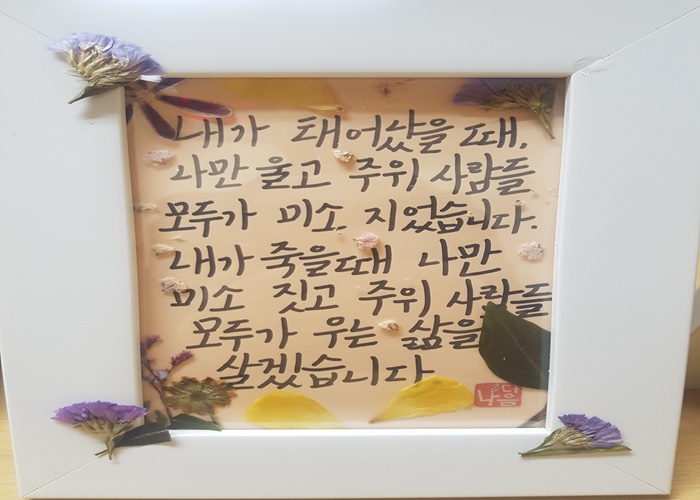 내가 태어났을 때,
나만 울고 주위 사람들
모두가 미소 지었습니다.
내가 죽을때 나만
미소 짓고 주위 사람들
모두가 우는 삶을
살겠습니다